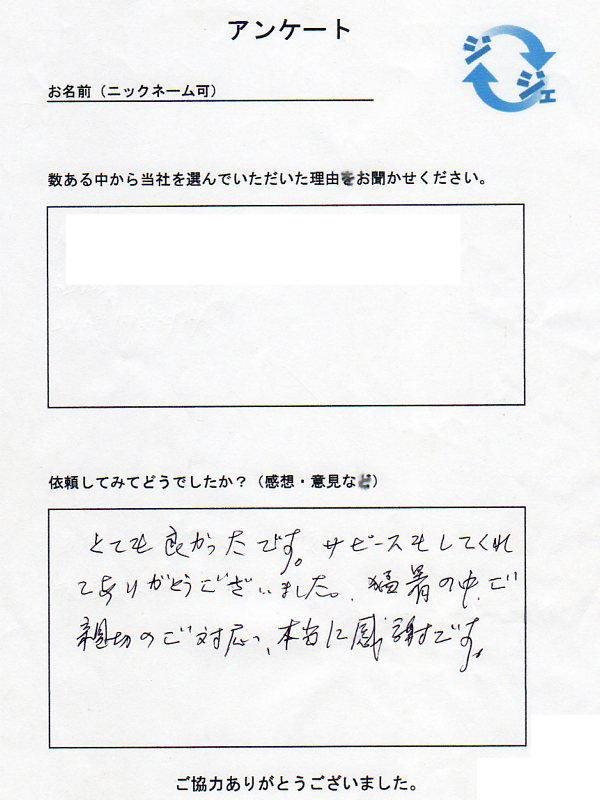 アンケート
ジ
ジェ
お名前（ニックネーム可）
数ある中から当社を選んでいただいた理由をお聞かせください。
依頼してみてどうでしたか？（感想・意見など）
とても良かったです。サビースもしてくれ
てありがとうございました。猛暑の中、ご
親切のご対応、本当に感謝です。
ご協力ありがとうございました。